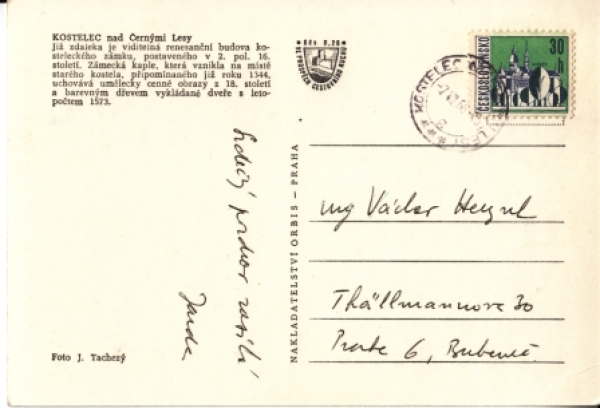 KOSTELEC nad Černými Lesy
Již zdaleka je viditelná renesanční budova ko-
steleckého zámku, postaveného v 2. pol. 16.
století. Zámecká kaple, která vznikla na místě
starého kostela, připomínaného již roku 1344,
uchovává umělecky cenné obrazy z 18. století
a barevným dřevem vykládané dveře s leto-
počtem 1573.
Kčs 0,20
VE PROSPĚCH CESTOVNÍHO RUCHU
KOSTELEC
LESY
ČESKOSLOVENSKO
30
h
Srdečný pozdrav zasílá
Jarda
NAKLADATELSTVÍ ORBIS – PRAHA
Ing Václav
Thällmannova 30
Praha 6, Bubeneč
Foto J. Tachezý